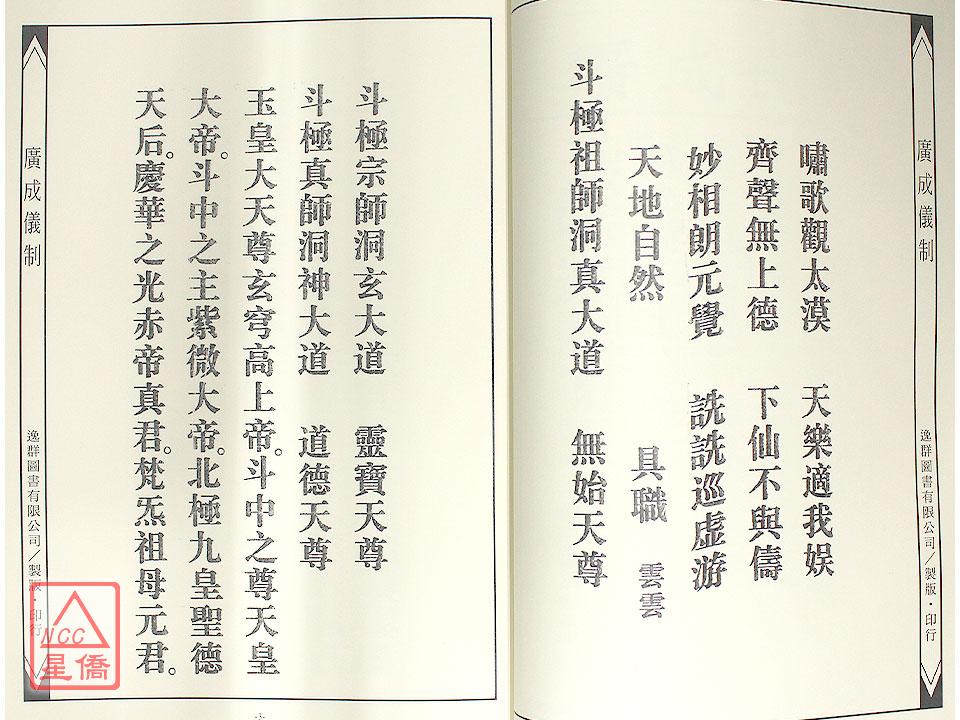 廣成儀制
逸群圖書有限公司／製版・印行
嘯歌觀太漠　天樂適我娛
齊聲無上德　下仙不與儔
妙相朗元覺　詵詵巡虛游
天地自然　具職　雲雲
斗極祖師洞真大道　無始天尊
斗極宗師洞玄大道　靈寶天尊
斗極真師洞神大道　道德天尊
玉皇大天尊玄穹高上帝。斗中之尊天皇
大帝。斗中之主紫微大帝。北極九皇聖德
天后。慶華之光赤帝真君。梵炁祖母元君。
廣成儀制
逸群圖書有限公司／製版・印行
NCC
星僑